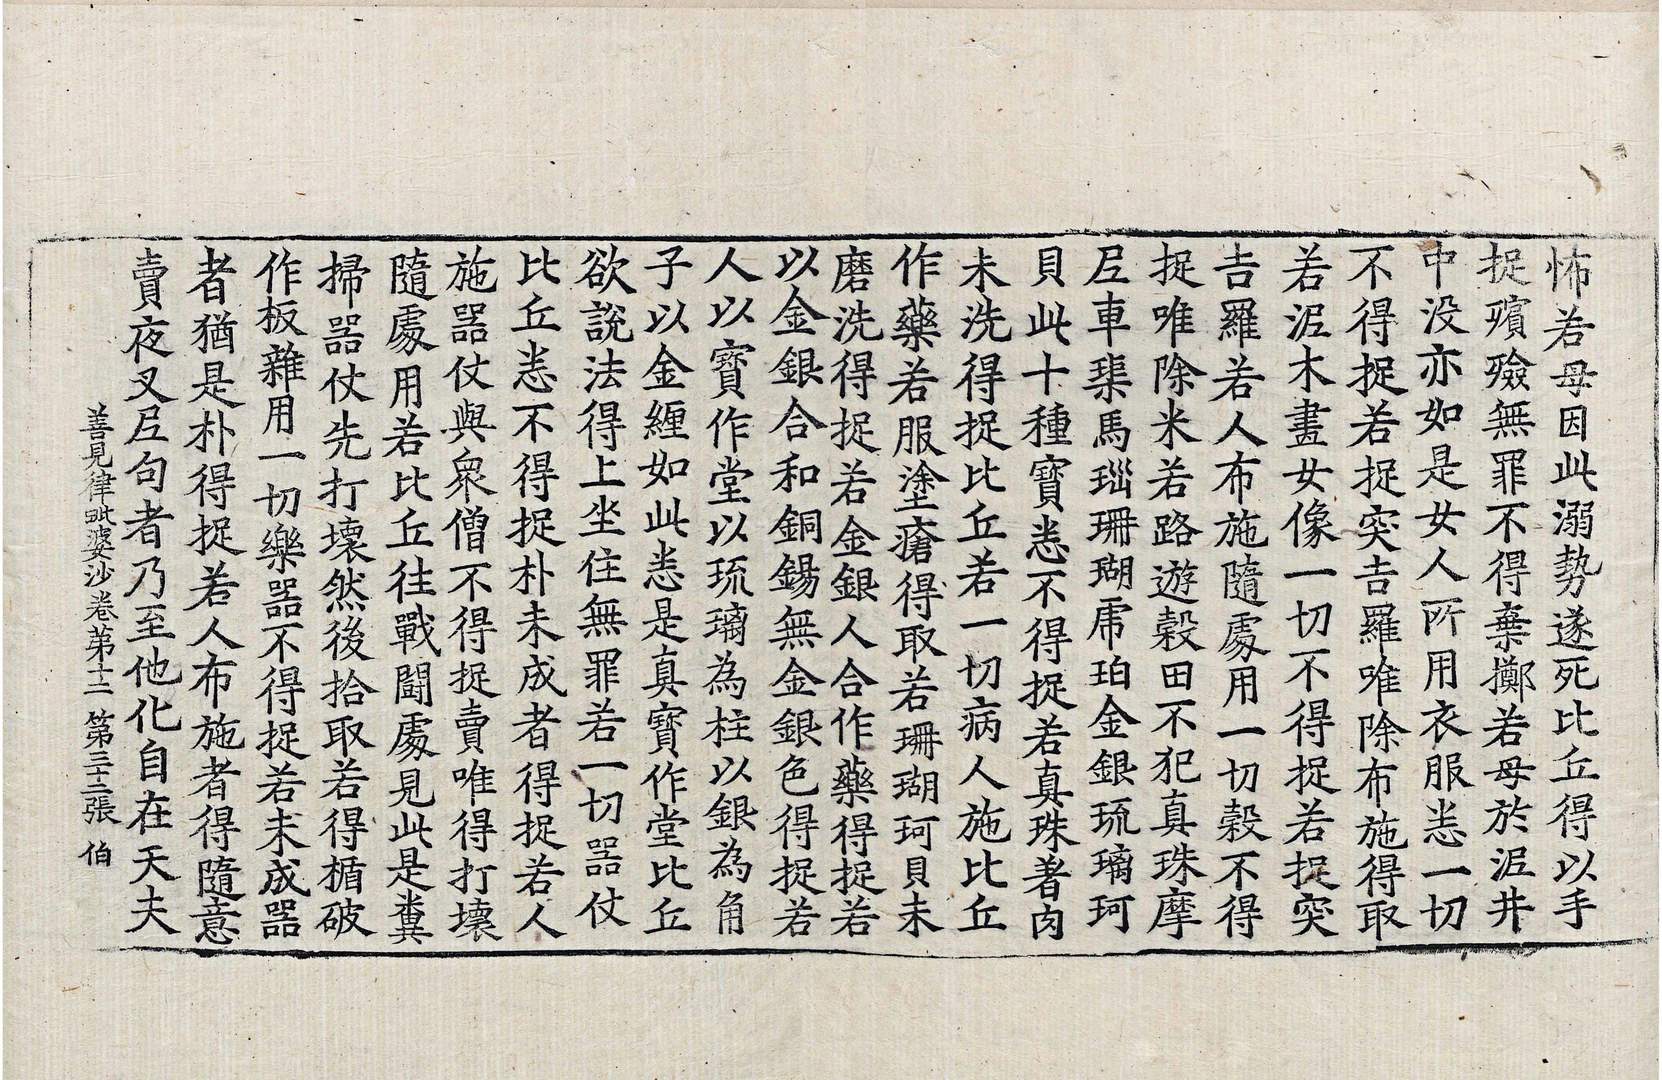 怖若母因此溺勢遂死比丘得以手
捉殯殮無罪不得棄擲若母於泥井
中没亦如是女人所用衣服悉一切
不得捉若捉突吉羅唯除布施得取
若泥木畫女像一切不得捉若捉突
吉羅若人布施隨處用一切穀不得
捉唯除米若路遊穀田不犯真珠摩
尼車璖馬瑙珊瑚虎珀金銀琉璃珂
貝此十種寶悉不得捉若真珠著肉
未洗得捉比丘若一切病人施比丘
作藥若服塗瘡得取若珊瑚珂貝未
磨洗得捉若金銀人合作藥得捉若
以金銀合和銅錫無金銀色得捉若
人以寶作堂以琉璃為柱以銀為角
子以金纏如此悉是真寶作堂比丘
欲說法得上坐住無罪若一切器仗
比丘悉不得捉朴未成者得捉若人
施器仗與衆僧不得捉賣唯得打壞
隨處用若比丘往戰鬪處見此是糞
掃器仗先打壞然後拾取若得楯破
作板雜用一切樂器不得捉若未成器
者猶是朴得捉若人布施者得隨意
賣夜叉尼句者乃至他化自在天夫
善見律毗婆沙卷第十二 第三十二張 伯